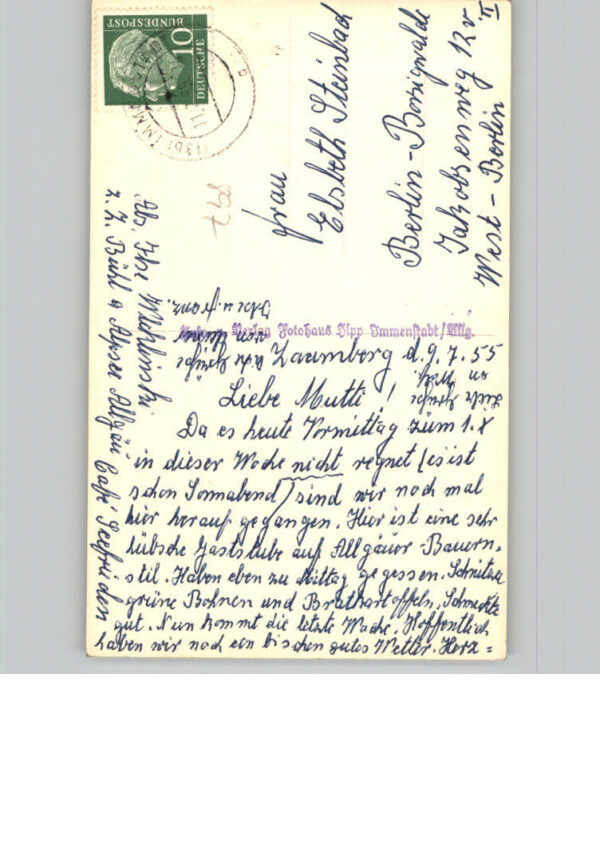 10
DEUTSCHE
BUNDESPOST
Frau
Elsbeth Steinbach
Berlin-Borsigwalde
Jakobsenweg 12v II
West-Berlin
Verlag Fotohaus Hipp Immenstadt/Allg.
Zaumberg d. 9. 7. 55
Liebe Mutti!
Da es heute Vormittag zum 1. X
in dieser Woche nicht regnet (es ist
schon Sonnabend) sind wir noch mal
hier herauf gegangen. Hier ist eine sehr
hübsche Gaststube auf Allgäuer-Bauern-
stil. Haben eben zu Mittag gegessen. Schnitzel
grüne Bohnen und Bratkartoffeln. Schmeckte
gut. Nun kommt die letzte Woche. Hoffentlich
haben wir noch ein bischen gutes Wetter. Herz=
Abs. Ilse
z. Z. Bühl a Alpsee Allgäu Café Seefrieden